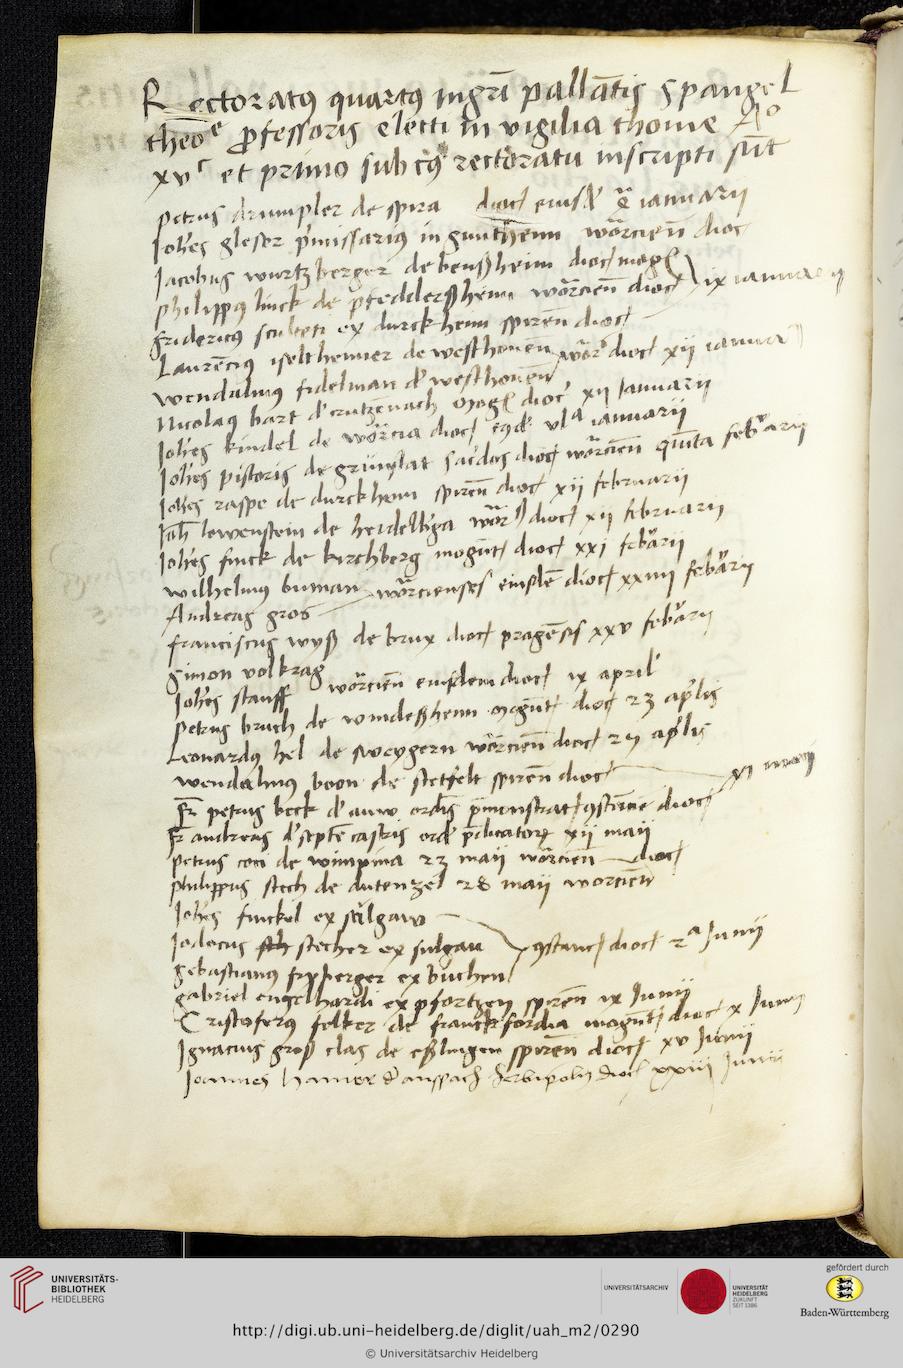 Rectoratus quartus mgrī pallātis Spangel
theoᵉ pfessoris electi in vigilia thome Aº
xvᶜ et primo sub cuius rectoratu inscripti sūt
petrus drumpler de spira dioc eiusd ianuarii
Joh̄es gleser p̄missarius in guntheim wōrcieñ dioc
Jacobus wurtzberger de benszheim dioc mog
philippus linck de pfedderszheim wōrcieñ dioc ix ianuarii
fridericus sculteti ex durckheim spireñ dioc
Laurēcius iselthemer de westhouen
wendalinus fidelman de westhouen wōr dioc xii ianuarii
Nicolaus bart de crutzenach mog dioc xii Januarii
Joh̄es kindel de wōrcia dioc eyd vlª ianuarii
Joh̄es pistoris de grunstat sacdos dioc wōrcieñ quīta febrarii
Joh̄es raspe de durckheim spireñ dioc xii februarii
Joh̄ lewenstein de heidelberga wōr dioc xii februarii
Joh̄es finck de kirchberg mogunt dioc xxi febrarii
wilhelmus buman
Andreas gros wōrcienses eiusdē dioc xxiiii febrarii
franciscus wysz de brux dioc pragēsis xxv febrarii
Simon volkrag
Joh̄es stauff wōrcieñ eiusdem dioc ix april
petrus bruch de windeszhem mogunt dioc 23 aprlis
Leonardus hel de sweygern wōrcieñ dioc aprlis
wendalinus boon de stetfelt spireñ dioc
Fr petrus beck de auw ordis p̄monstrat dioc xi maii
Fr andreas de septē castris ord p̄dicatorum xiii maii
petrus coci de wimpina 23 maii wōrcieñ dioc
philippus stech de dutenzel 28 maii worcieñ
Joh̄es finckel ex sulgaw
Jodocus stecher ex sulgau 9stanc dioc 2ª Junii
Sebastianus fryberger ex buchen
gabriel engelhardi ex pfortzen spireñ ix Junii
Cristoferus felker de franckfordia mogunt dioc x Junii
Ignacius grosz clas de eszlingen spireñ dioc xv Junii
Joannes Hamer de anspach herbipoleñ dioc xxiii Junii
UNIVERSITÄTS-
BIBLIOTHEK
HEIDELBERG
UNIVERSITÄTSARCHIV
UNIVERSITÄT
HEIDELBERG
ZUKUNFT
SEIT 1386
gefördert durch
Baden-Württemberg
http://digi.ub.uni-heidelberg.de/diglit/uah_m2/0290
© Universitätsarchiv Heidelberg